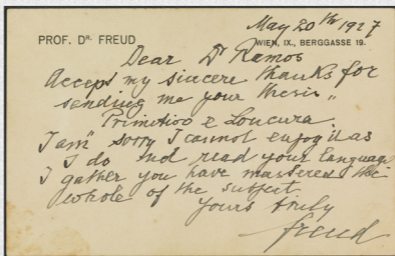 May 20th 1927
PROF. DR. FREUD
WIEN, IX., BERGGASSE 19.
Dear Dr Ramos
Accept my sincere thanks for
sending me your thesis „
Primitivo e Loucura.
I am" sorry I cannot enjoy it as
I do not read your language
I gather you have mastered the
whole of the subject
Yours truly
freud